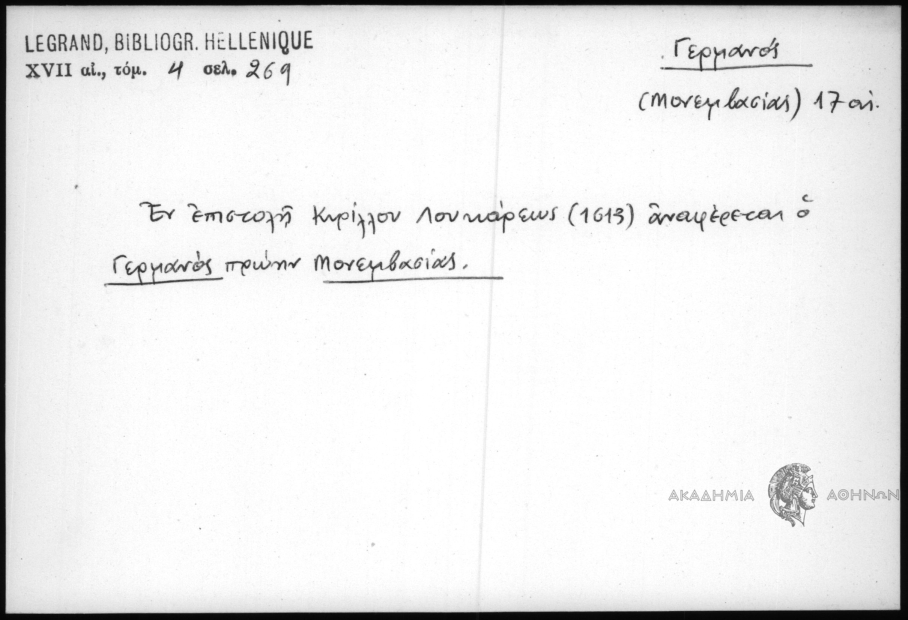 LEGRAND, BIBLIOGR. HELLENIQUE
XVII αἰ., τόμ. 4 σελ. 269
Γερμανός
(Μονεμβασίας) 17 αἰ.
Ἐν ἐπιστολῇ Κυρίλλου Λουκάρεως (1613) ἀναφέρεται ὁ
Γερμανός πρώην Μονεμβασίας.
ΑΚΑΔΗΜΙΑ ΑΘΗΝΩΝ